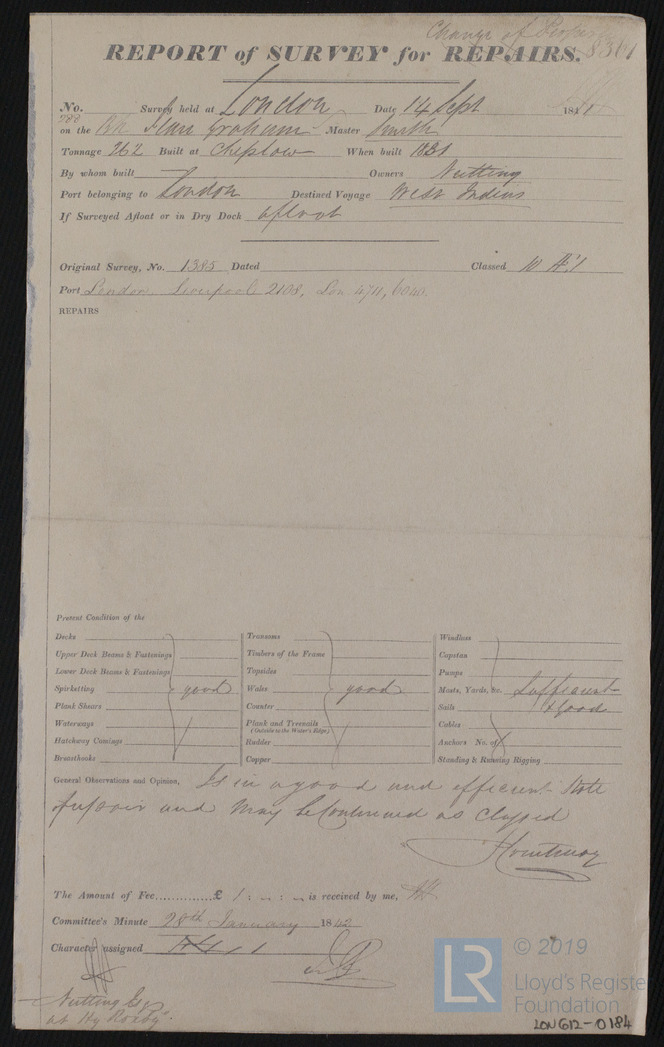 Change of
8361
REPORT of SURVEY for REPAIRS.
No. Survey held at London Date 14 Sept 1841
on the Bk Jean Graham Master Smith
Tonnage 262 Built at Chepstow When built 1831
By whom built Owners Nutting
Port belonging to London Destined Voyage West Indies
If Surveyed Afloat or in Dry Dock afloat
Original Survey, No. 1385 Dated Classed 10 A.1
Port London Liverpool 2108, Lon 4711, 6040.
REPAIRS
Present Condition of the
Decks Transoms Windlass
Upper Deck Beams & Fastenings Timbers of the Frame Capstan
Lower Deck Beams & Fastenings Topsides Pumps
Spirketting good Wales good Masts, Yards, &c. Sufficient
Plank Shears Counter Sails & good
Waterways Plank and Treenails (Outside to the Water's Edge) Cables
Hatchway Comings Rudder Anchors No. of
Breasthooks Copper Standing & Running Rigging
General Observations and Opinion, Is in a good and efficient State
of repair and may be Continued as Classed
Courtenay
The Amount of Fee............£ 1 : - : - is received by me,
Committee's Minute 28th January 1842
Character assigned
Nutting
at
© 2019
LR
Lloyd's Register
Foundation
LON612-0184